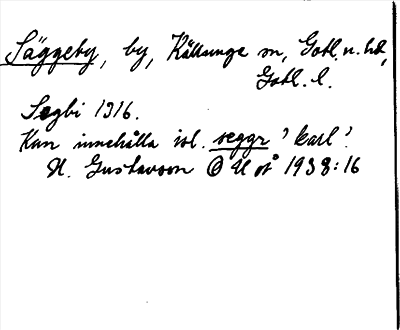 Säggeby, by, Källunge sn, Gotl. n. hd,
Gotl. l.
Segbi 1316.
Kan innehålla isl. seggr 'karl'.
H. Gustavson @ UoÅ 1938:16